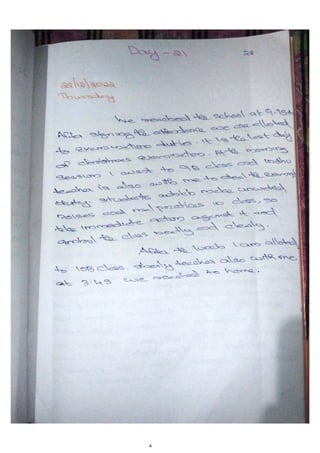 Day - 21
28
22/12/2022
Thursday
We reached the school at 9.15
After signing the attendance we are allotted
to examination duties. It is the last day
of christmas examination. At the morning
session I went to 9B class and
teacher is also with me to the
duty. students which make unwanted
noises and mal practices in class, so
take immediate action against it and
control the class neatly and clearly.
After the lunch I am allotted
to 10B class. teacher also with me
at 3.45 we reached to home.
4